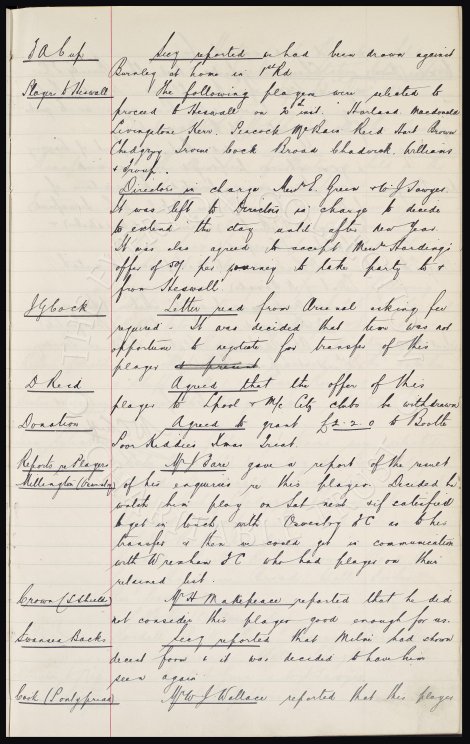 F A Cup. Secy reported we had been drawn against
Burnley at home in 1st Rd
Players to Heswall The following players were selected to
proceed to Heswall on inst. Harland Macdonald
Livingstone Kerr. Peacock McBain Reid Hart Brown
Chedgzoy Irvine Cock Broad Chadwick. Williams
& Troup.
Directors in charge Messrs E. Green & W J Sawyer.
It was left to Directors in charge to decide
to extend the day until after New Year.
It was also agreed to accept Messrs Harding's
offer of 50/- per journey to take party to &
from Heswall
J G Cock Letter read from Arsenal asking fee
required - It was decided that time was not
opportune to negotiate for transfer of this
player at present
D Reid Agreed that the offer of this
player to Lpool & M/c City clubs be withdrawn
Donation Agreed to grant £2-2-0 to Bootle
Poor Kiddies Xmas Treat.
Reports re Players Mr J Bare gave a report of the result
Millington (Oswestry) of his enquiries re this player. Decided he
watch him play on Sat next & if satisfied
to get in touch with Oswestry F C as to his
transfer & then we could get in communication
with Wrexham F C who had player on their
retained list.
Crown (S Shields) Mr H Makepeace reported that he did
not consider this player good enough for us.
Swansea Backs Secy reported that Milne had shown
decent form & it was decided to have him
seen again
Cook (Pontypridd) Mr W J Wallace reported that this player